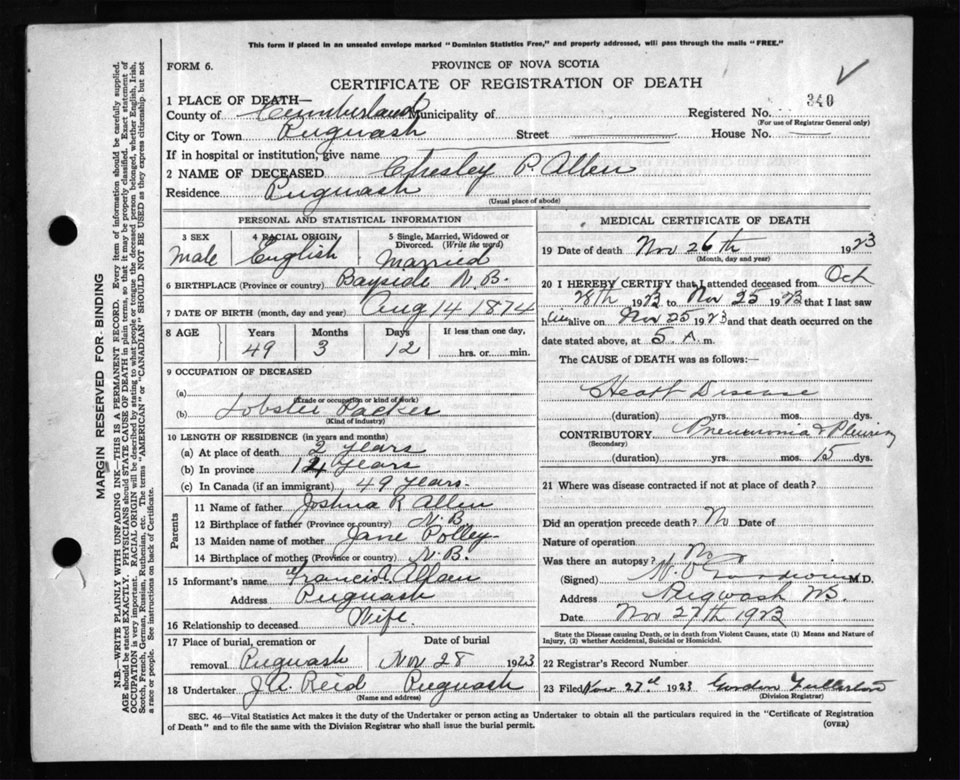 This form if placed in an unsealed envelope marked "Dominion Statistics Free," and properly addressed, will pass through the mails "FREE."
FORM 6.
PROVINCE OF NOVA SCOTIA
CERTIFICATE OF REGISTRATION OF DEATH
1 PLACE OF DEATH—
340
County of Cumberland Municipality of Registered No.
(For use of Registrar General only)
City or Town Pugwash Street House No.
If in hospital or institution, give name
2 NAME OF DECEASED Chesley P. Allen
Residence Pugwash
(Usual place of abode)
PERSONAL AND STATISTICAL INFORMATION
3 SEX
Male
4 RACIAL ORIGIN
English
5 Single, Married, Widowed or Divorced. (Write the word)
Married
6 BIRTHPLACE (Province or country) Bayside N.B.
7 DATE OF BIRTH (month, day and year) Aug 14 1874
8 AGE Years Months Days If less than one day,
49 3 12 hrs. or min.
9 OCCUPATION OF DECEASED
(a)
(Trade or occupation or kind of work)
(b) Lobster Packer
(Kind of industry)
10 LENGTH OF RESIDENCE (in years and months)
(a) At place of death 2 years
(b) In province years
(c) In Canada (if an immigrant) 49 years.
Parents
11 Name of father Joshua R Allen
12 Birthplace of father (Province or country) N.B.
13 Maiden name of mother Jane Polley
14 Birthplace of mother (Province or country) N.B.
15 Informant's name Allen
Address Pugwash
16 Relationship to deceased Wife.
17 Place of burial, cremation or removal Pugwash
Date of burial
Nov 28 1923
18 Undertaker J.A. Reid Pugwash
(Name and address)
MEDICAL CERTIFICATE OF DEATH
19 Date of death Nov 26th 1923
(Month, day and year)
20 I HEREBY CERTIFY that I attended deceased from Oct
28th 1923 to Nov 25 1923 that I last saw
him alive on Nov 25 1923 and that death occurred on the
date stated above, at 5 A. m.
The CAUSE of DEATH was as follows:—
Heart Disease
(duration) yrs. mos. dys.
CONTRIBUTORY Pneumonia & Pleurisy
(Secondary)
(duration) yrs. mos. 15 dys.
21 Where was disease contracted if not at place of death?
Did an operation precede death? No Date of
Nature of operation
Was there an autopsy? No
(Signed) M.D.
Address Pugwash NS.
Date Nov 27th 1923
State the Disease causing Death, or in death from Violent Causes, state (1) Means and Nature of Injury, (2) whether Accidental, Suicidal or Homicidal.
22 Registrar's Record Number
23 Filed Nov. 27th 1923 Gordon Fullerton
(Division Registrar)
SEC. 46—Vital Statistics Act makes it the duty of the Undertaker or person acting as Undertaker to obtain all the particulars required in the "Certificate of Registration
of Death" and to file the same with the Division Registrar who shall issue the burial permit.
(OVER)
MARGIN RESERVED FOR BINDING
N.B.—WRITE PLAINLY WITH UNFADING INK—THIS IS A PERMANENT RECORD. Every item of information should be carefully supplied.
AGE should be stated EXACTLY. PHYSICIANS should STATE CAUSE OF DEATH in plain terms, so that it may be properly classified. Exact statement of
OCCUPATION is very important. RACIAL ORIGIN will be described by stating to what people or tongue the deceased person belonged, whether English, Irish,
Scotch, French, German, Russian, Ruthenian, etc. The terms "AMERICAN" or "CANADIAN" SHOULD NOT BE USED as they express citizenship but not
a race or people. See instructions on back of Certificate.